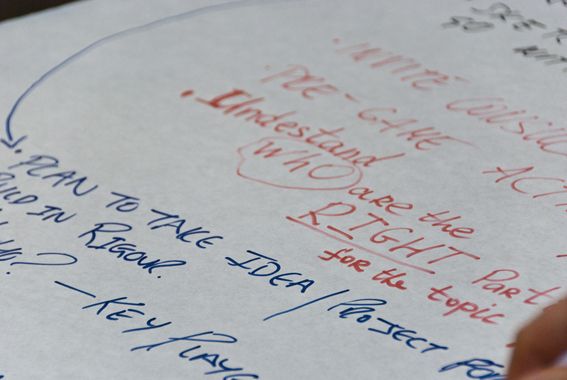 INVITE
PRE-GAME
• Understand
WHO are the
RIGHT Part
for the topic
PLAN TO TAKE IDEA / PROJECT FOR
BUILD IN RIGOUR.
WHO? — KEY PLAYE